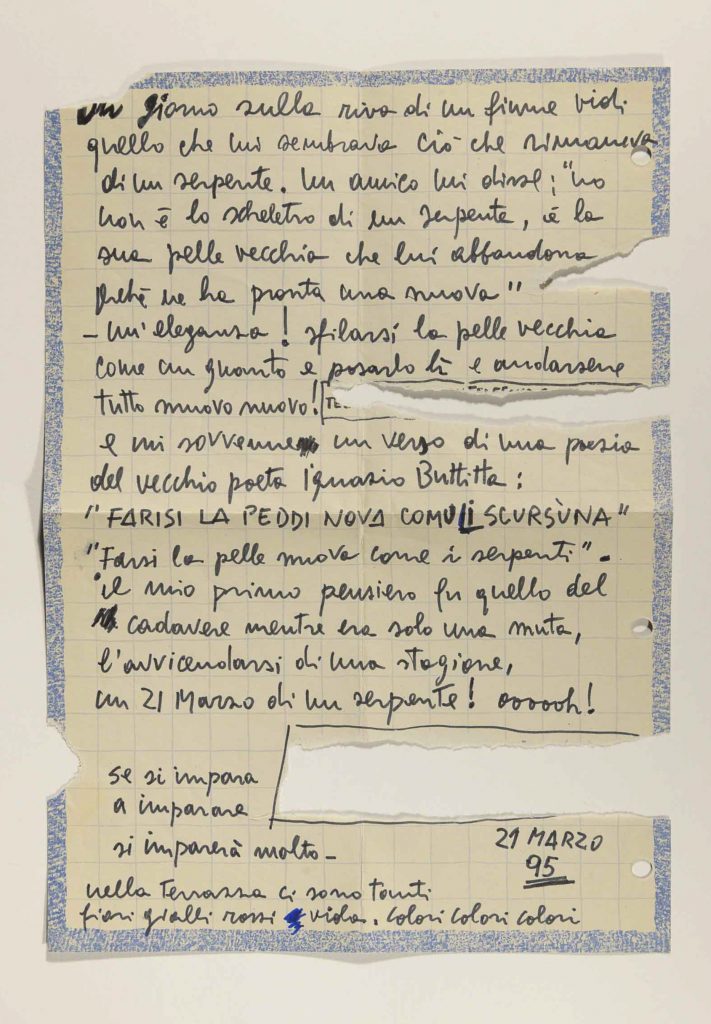 un giorno sulla riva di un fiume vidi
quello che mi sembrava ciò che rimaneva
di un serpente. Un amico mi disse: "no
non è lo scheletro di un serpente, è la
sua pelle vecchia che lui abbandona
perchè ne ha pronta una nuova"
- un'eleganza! sfilarsi la pelle vecchia
come un guanto e posarlo lì e andarsene
tutto nuovo nuovo!
e mi sovvenne un verso di una poesia
del vecchio poeta Ignazio Buttitta:
"FARISI LA PEDDI NOVA COMU LI SCURSÙNA"
"Farsi la pelle nuova come i serpenti".
il mio primo pensiero fu quello del
cadavere mentre era solo una muta,
l'avvicendarsi di una stagione,
un 21 Marzo di un serpente! ooooooh!
se si impara
a imparare
si imparerà molto -
21 MARZO
95
nella Terrazza ci sono tanti
fiori gialli rossi viola. colori colori colori